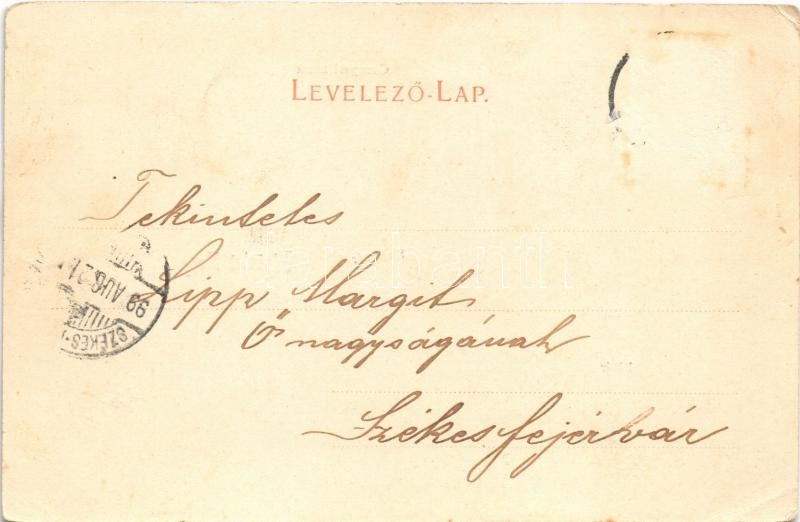 LEVELEZŐ-LAP.
Tekintetes
Lipp Margit
Ő nagyságának
Székesfejérvár
SZÉKES-
99 AUG. 21
darabanth